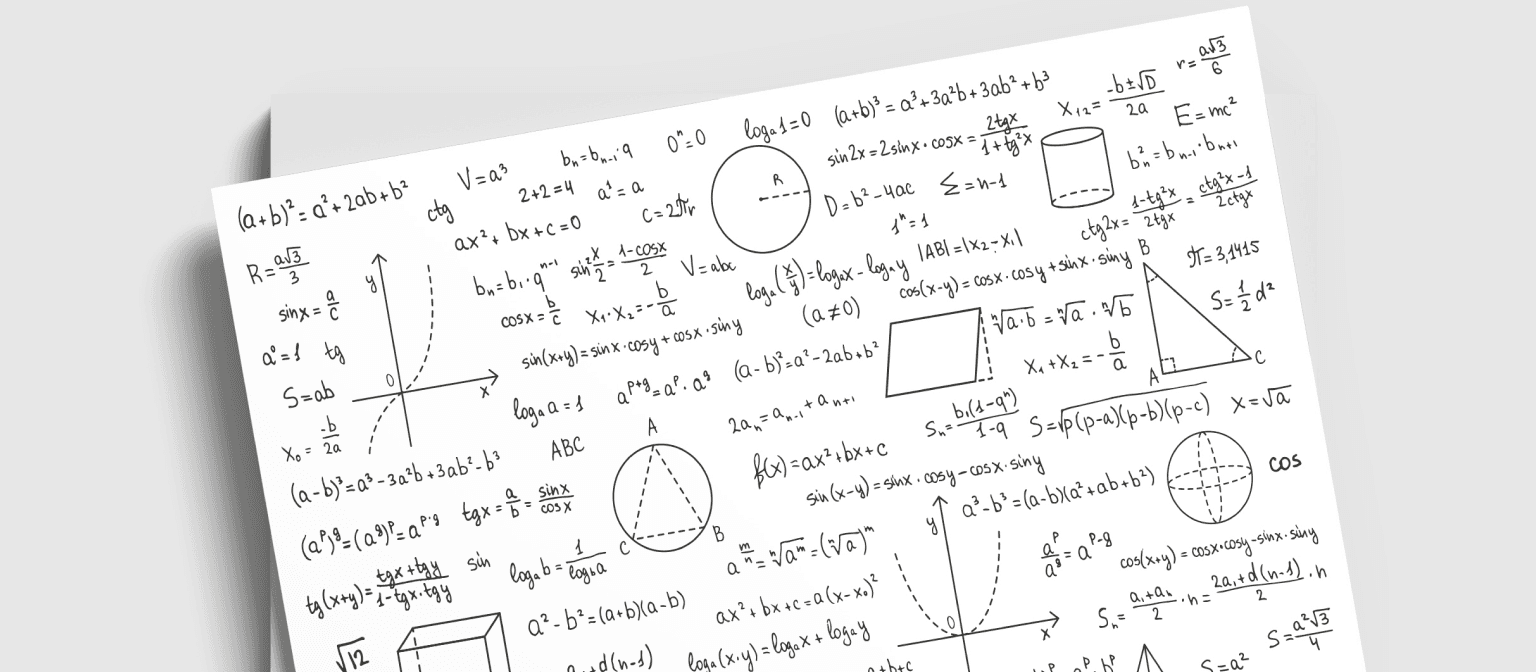 (a+b)² = a² + 2ab + b²
ctg
V = a³
bₙ = bₙ₋₁ · q
0ⁿ = 0
logₐ1 = 0
(a+b)³ = a³ + 3a²b + 3ab² + b³
x₁₂ = (-b ± √D)/2a
r = a√3/6
E = mc²
2+2=4
a¹ = a
sin2x = 2sinx · cosx = 2tgx/(1+tg²x)
R
ax² + bx + c = 0
C = 2πr
D = b² - 4ac
Σ = n-1
bₙ² = bₙ₋₁ · bₙ₊₁
1ⁿ = 1
ctg2x = (1-tg²x)/2tgx = (ctg²x-1)/2ctgx
R = a√3/3
y
bₙ = b₁ · qⁿ⁻¹
sin² x/2 = (1-cosx)/2
V = abc
logₐ(x/y) = logₐx - logₐy
|AB| = |x₂ - x₁|
B
π = 3,1415
sinx = a/c
cosx = b/c
x₁ · x₂ = - b/a
(a ≠ 0)
cos(x-y) = cosx · cosy + sinx · siny
ⁿ√(a·b) = ⁿ√a · ⁿ√b
S = 1/2 d²
a⁰ = 1
tg
sin(x+y) = sinx · cosy + cosx · siny
(a-b)² = a² - 2ab + b²
x₁ + x₂ = - b/a
A
C
0
x
S = ab
logₐa = 1
aᵖ⁺ᵍ = aᵖ · aᵍ
2aₙ = aₙ₋₁ + aₙ₊₁
Sₙ = b₁(1-qⁿ)/(1-q)
S = √p(p-a)(p-b)(p-c)
x = √a
x₀ = -b/2a
(a-b)³ = a³ - 3a²b + 3ab² - b³
ABC
A
f(x) = ax² + bx + c
sin(x-y) = sinx · cosy - cosx · siny
cos
tgx = a/b = sinx/cosx
C
B
y
a³ - b³ = (a-b)(a² + ab + b²)
(aᵖ)ᵍ = (aᵍ)ᵖ = aᵖ·ᵍ
sin
logₐb = 1/log_b a
a^(m/n) = ⁿ√aᵐ = (ⁿ√a)ᵐ
aᵖ/aᵍ = aᵖ⁻ᵍ
cos(x+y) = cosx · cosy - sinx · siny
tg(x+y) = (tgx + tgy)/(1 - tgx · tgy)
a² - b² = (a+b)(a-b)
ax² + bx + c = a(x-x₀)²
0
x
Sₙ = (a₁ + aₙ)/2 · n = (2a₁ + d(n-1))/2 · n
√12
+d(n-1)
logₐ(x·y) = logₐx + logₐy
+b+c
S = a²
S = a²√3/4